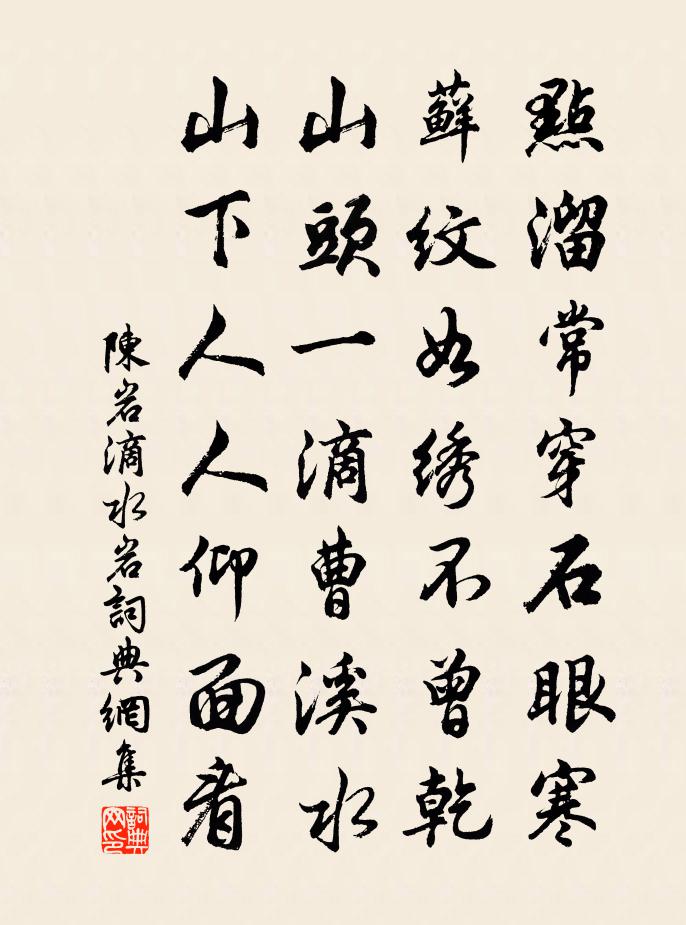 點溜常穿石眼寒
蘚紋如绣不曾乾
山頭一滴曹溪水
山下人人仰面看
陳岩滴水岩詞典網集
詞典
网印